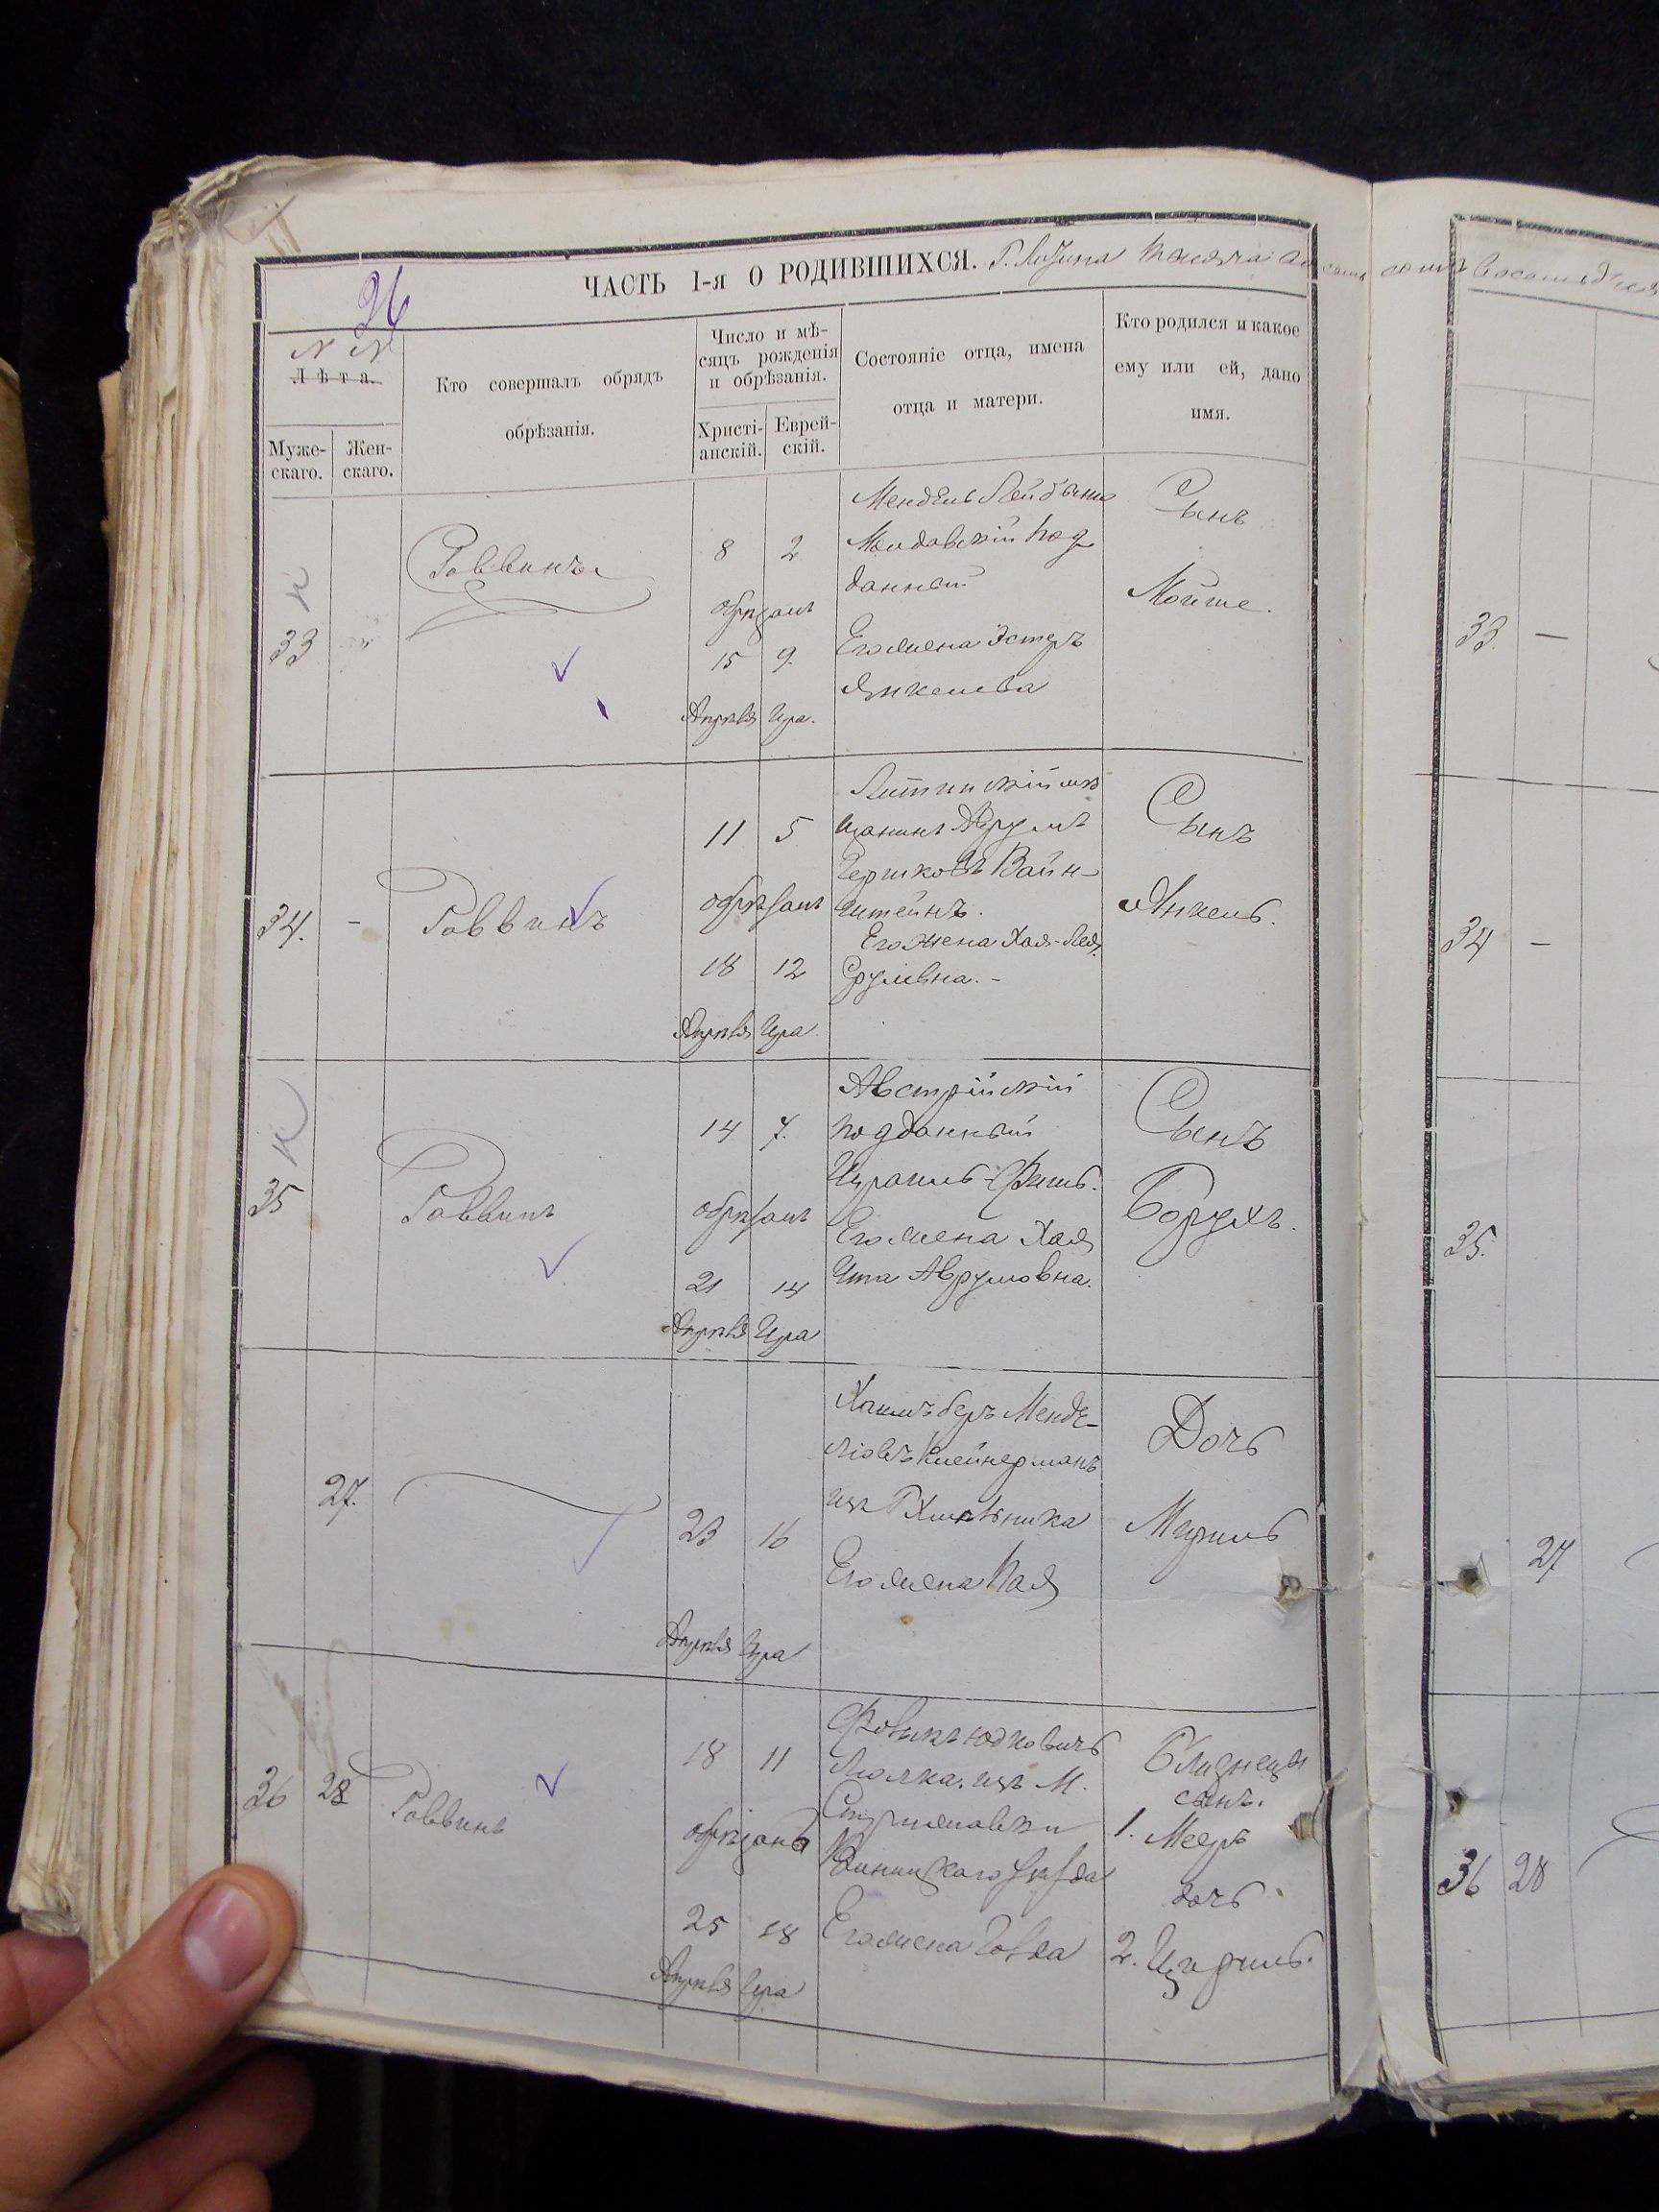 ЧАСТЬ 1-я О РОДИВШИХСЯ. Г. Литина тысяча
26
N N
Лѣта.
Муже-
скаго.
Жен-
скаго.
Кто совершалъ обрядъ
обрѣзанія.
Число и мѣ-
сяцъ рожденія
и обрѣзанія.
Христі-
анскій.
Еврей-
скій.
Состояніе отца, имена
отца и матери.
Кто родился и какое
ему или ей, дано
имя.
33
Раввинъ
8 2
обрѣзанъ
15 9.
Апрѣля Іира.
Мендель
Молдавскій под
данный
Его жена Эстеръ
Янкелева
Сынъ
Мойше.
34. -
Раввинъ
11 5
обрѣзанъ
18 12
Апрѣля Іира
Литинскій мѣ
щанинъ Аврумъ
Гершковъ Вайн-
штейнъ.
Его жена Хая-Лея
Срулевна. -
Сынъ
Янкель.
35
Раввинъ
14 7.
обрѣзанъ
21 14
Апрѣля Іира
Австрійскій
подданный
Израиль
Его жена Хая
Ита Аврумовна.
Сынъ
Борухъ.
27.
23 16
Апрѣля Іира
Хаимъ беръ Менде-
ліовъ Клейнерманъ
изъ Г Хмѣльника
Его жена
Дочь
36 28
Раввинъ
18 11
обрѣзанъ
25 18
Апрѣля Іира
Юдковичъ
изъ М.
Стрижавки
Винницкаго уѣзда
Его жена
Близнецы
сынъ.
1. Мееръ
дочь
2.
33. —
34 —
35.
27
36 28